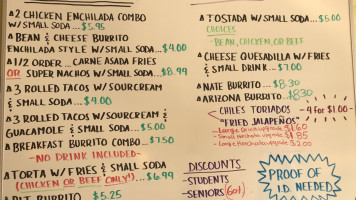 2 CHICKEN ENCHILADA COMBO
W/SMALL SODA...$5.95
BEAN & CHEESE BURRITO
ENCHILADA STYLE W/SMALL SODA...$4.00
1/2 ORDER... CARNE ASADA FRIES
OR SUPER NACHOS W/SMALL SODA...$8.99
3 ROLLED TACOS W/SOURCREAM
& SMALL SODA...$4.00
3 ROLLED TACOS W/SOURCREAM &
GUACAMOLE & SMALL SODA...$5.00
BREAKFAST BURRITO COMBO...$7.50
-NO DRINK INCLUDED-
TORTA W/FRIES & SMALL SODA
(CHICKEN OR BEEF ONLY!)...$6.99
BURRITO $5.25
TOSTADA W/SMALL SODA...$5.00
CHOICES
BEAN, CHICKEN, OR BEEF
CHEESE QUESADILLA W/FRIES
& SMALL DRINK...$7.00
NATE BURRITO...$8.30
ARIZONA BURRITO...$8.30
CHILES TORIADOS - 4 FOR $1.00-
"FRIED JALAPEÑOS"
Large Drink upgrade $1.60
Small Horchata upgrade $1.85
Large Horchata upgrade $2.00
DISCOUNTS
-STUDENTS
-SENIORS (60+)
PROOF OF
I.D. NEEDED